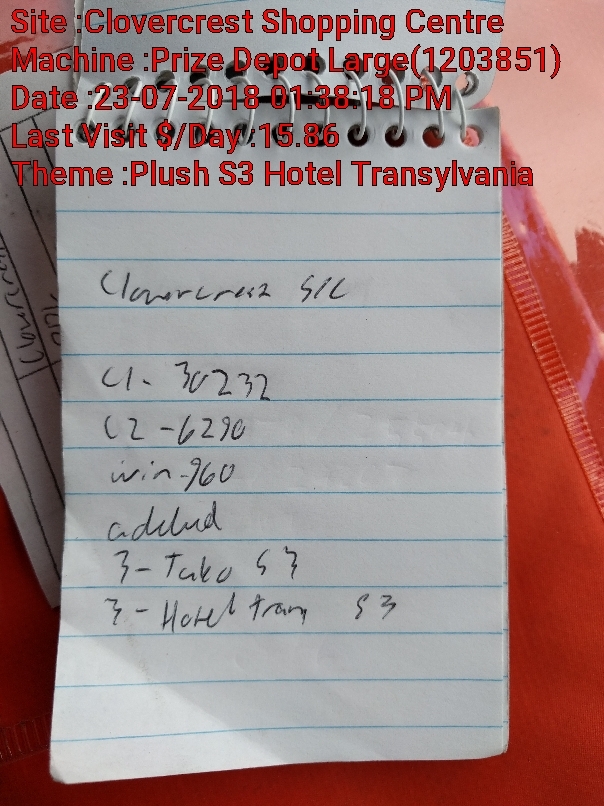 Site :Clovercrest Shopping Centre
Machine :Prize Depot Large(1203851)
Date :23-07-2018 01:38:18 PM
Last Visit $/Day :15.86
Theme :Plush S3 Hotel Transylvania
Clovercrest S/C
C1- 30232
C2-6290
win-960
added
3-Tako S3
3-Hotel tran S3